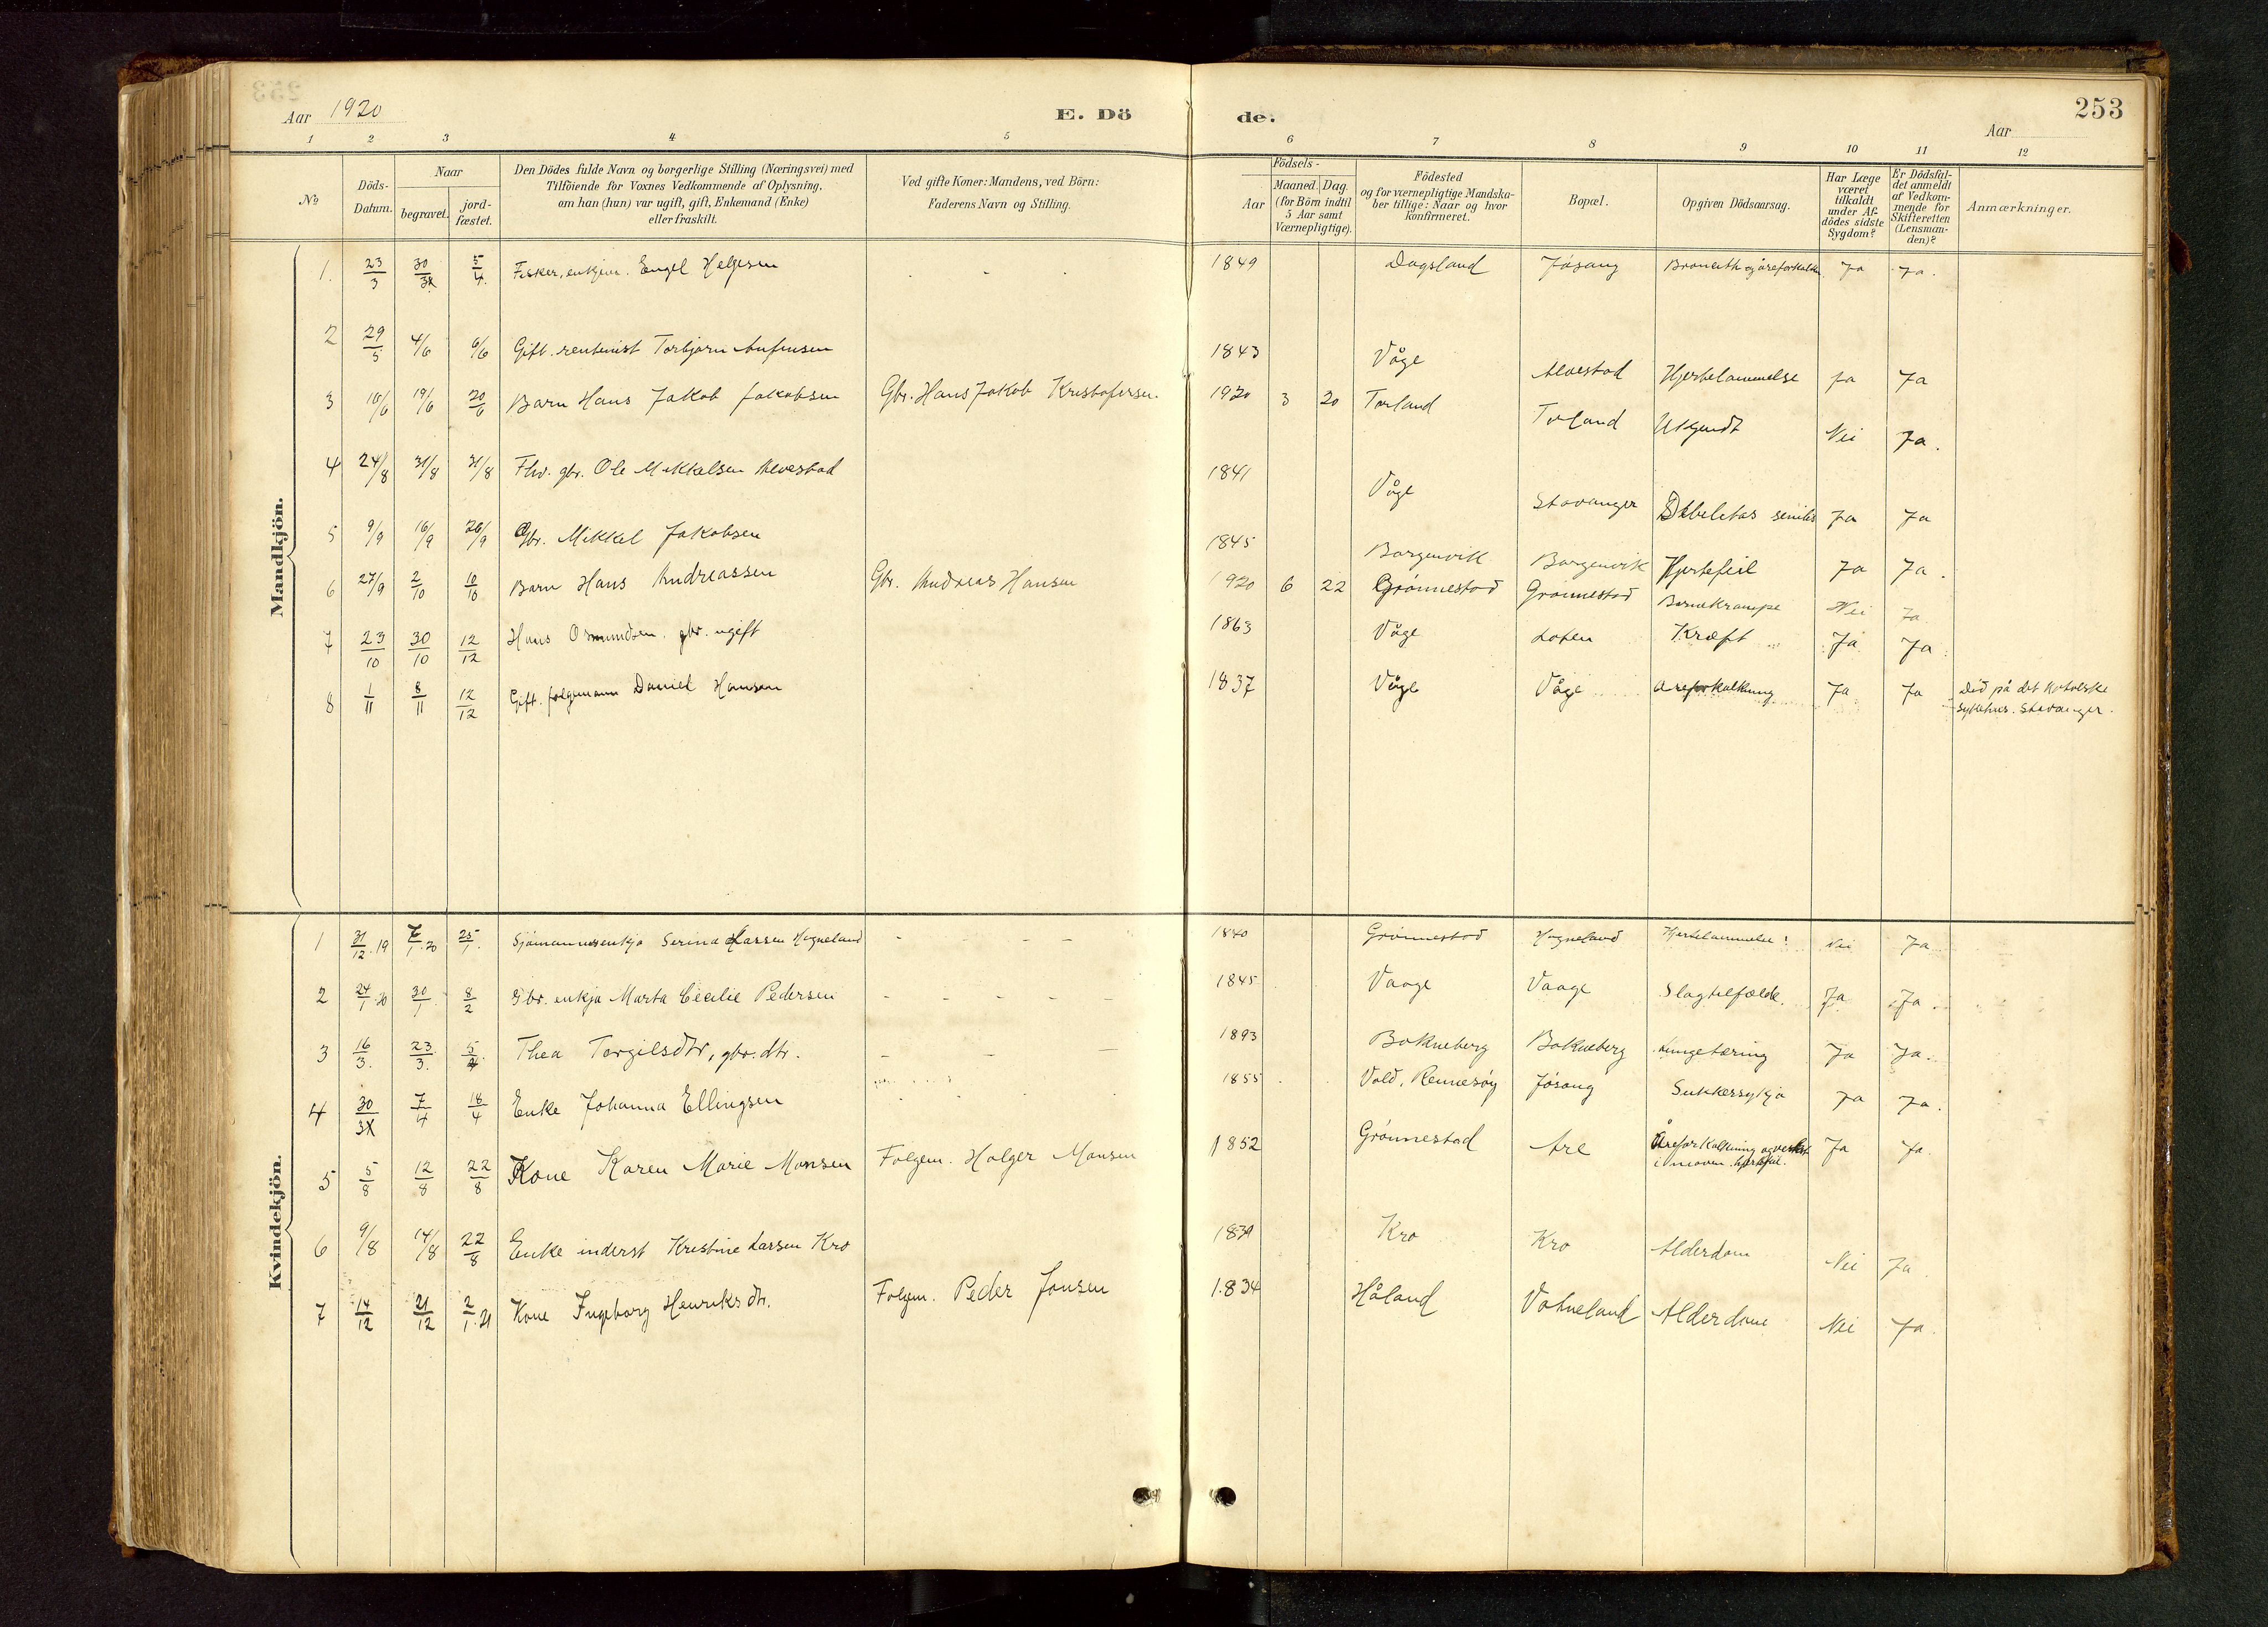 253
Aar 1920
E. Dö de.
Aar
1 2 3 4 5 6 7 8 9 10 11 12
No
Döds-Datum.
Naar
begravet.
jord-fæstet.
Den Dödes fulde Navn og borgerlige Stilling (Næringsvei) med
Tilföiende for Voxnes Vedkommende af Oplysning,
om han (hun) var ugift, gift, Enkemand (Enke)
eller fraskilt.
Ved gifte Koner: Mandens, ved Börn:
Faderens Navn og Stilling.
Födsels-
Aar
Maaned. Dag.
(for Börn indtil
5 Aar samt
Værnepligtige).
Födested
og for værnepligtige Mandska-
ber tillige: Naar og hvor
konfirmeret.
Bopæl.
Opgiven Dödsaarsag.
Har Læge
været
tilkaldt
under Af-
dödes sidste
Sygdom?
Er Dödsfal-
det anmeldt
af Vedkom-
mende for
Skifteretten
(Lensman-
den)?
Anmærkninger.
Mandkjön.
1. 23/3 30/3 5/4. Fisker, enkjem. Engel Helgesen - - - 1849 Dagsland Jósang Bronkith og åreforkalkn. Ja Ja.
2 29/5 4/6 6/6 Gift. rentenist Torbjørn Anfinsen 1843 Våge Alvestad Hjertelammelse Ja Ja
3 10/6 19/6 20/6 Barn Hans Jakob Jakobsen Gbr. Hans Jakob Kristofersen. 1920 3 20 Torland Torland Ukjendt Nei Ja.
4 24/8 31/8 31/8 Fhv. gbr. Ole Mikkelsen Alvestad 1841 Våge Stavanger Debelitas senilis Ja Ja
5 9/9 16/9 26/9 Gbr. Mikkel Jakobsen 1845 Borgenvik Borgenvik Hjertefeil Ja Ja.
6 27/9 2/10 10/10 Barn Hans Andreassen Gbr. Andreas Hansen 1920 6 22 Grönnestad Grönnestad Barnekrampe Nei Ja
7 23/10 30/10 12/12 Hans Osmundsen. gbr. ugift 1863 Våge Loten Kræft Ja Ja
8 1/11 8/11 12/12 Gift. folgemann Daniel Hansen 1837 Våge Våge Areforkalkning Ja Ja Död på det katolske
sykehus. Stavanger.
Kvindekjön.
1 31/12.19 7/1.20 25/1. Sjömannsenkja Serina Larsen Hogneland - - - - 1840 Grönnestad Hogneland Hjertelammelse Nei Ja
2 24/1.20 30/1 8/2 Gbr. enkja Marta Cecilie Pedersen - - - - - 1845 Vaage Vaage Slagtilfælde. Ja Ja.
3 16/3. 23/3. 5/4. Thea Torgilsdtr, gbr. dtr. - - - 1893 Bokneberg Bokneberg Lungetæring Ja Ja.
4 30/3 7/4 18/4 Enke Johanna Ellingsen 1855 Vold, Rennesöy Jósang Sukkersykja Ja Ja.
5 5/8 12/8 22/8 Kone Karen Marie Monsen Folgem. Holger Monsen 1852 Grönnestad Are Åreforkalkning og vekst
i maven. hjertefeil. Ja Ja.
6 9/8 14/8 22/8 Enke inderst Kristine Larsen Kro 1839 Kro Kro Alderdom Nei Ja
7 14/12 21/12 2/1.21 Kone Ingeborg Henriksdtr. Folgem. Peder Jonsen 1834 Håland Vatneland Alderdom Nei Ja.